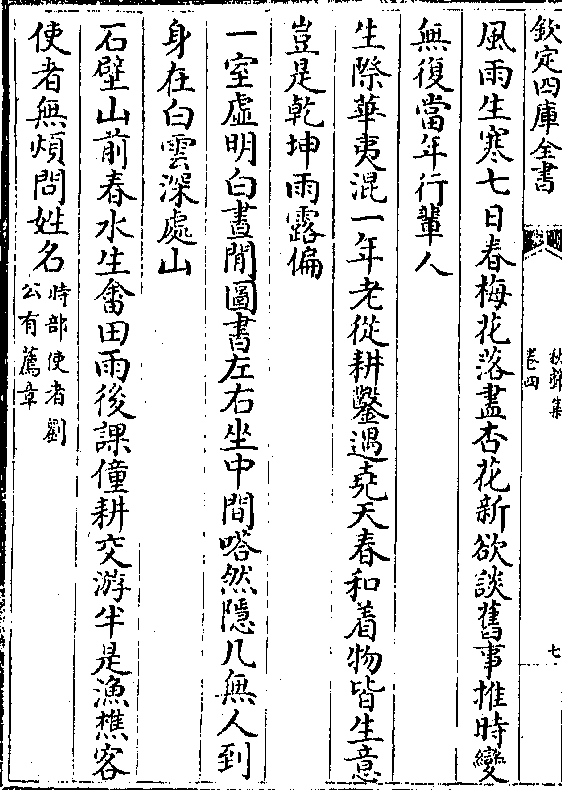 欽定四庫全書
卷四
七
風雨生寒七日春梅花落盡杏花新欲談舊事推時變
無復當年行輩人
生際華夷混一年老從耕鑿遇堯天春和着物皆生意
豈是乾坤雨露偏
一室虛明白晝閒圖書左右坐中間嗒然隱几無人到
身在白雲深處山
石壁山前春水生畬田雨後課僮耕交游半是漁樵客
使者無煩問姓名時部使者劉
公有薦章